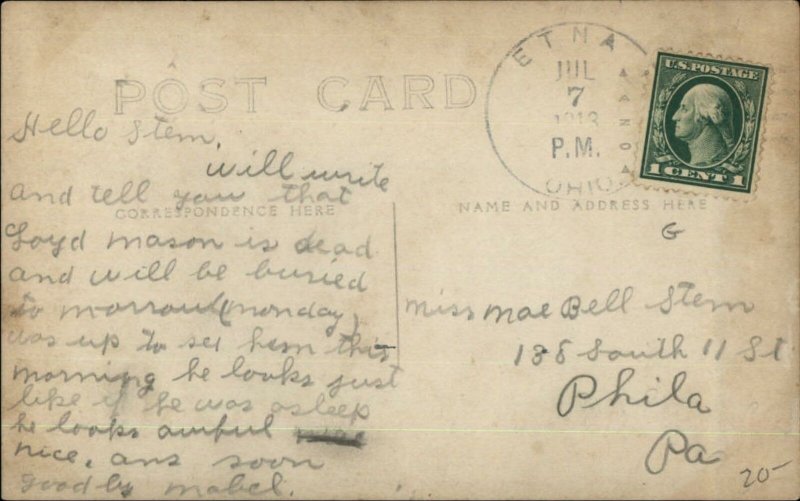 POST CARD
ETNA
JUL
7
1913
P.M.
OHIO
U.S. POSTAGE
1 CENT 1
Hello Stem,
will write
and tell you that
CORRESPONDENCE HERE
Loyd mason is dead
and will be buried
to morrow (monday)
was up to see him this
morning he looks just
like if he was asleep
he looks awful
nice. ans soon
goodby mabel.
NAME AND ADDRESS HERE
G
Miss Mae Bell Stem
138 South 11 St
Phila
Pa
20-